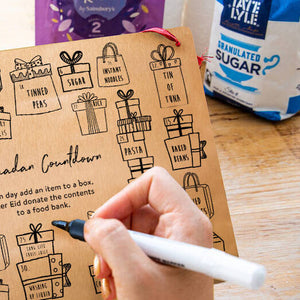 by Sainsbury's
2
TATE
LYLE
GRANULATED
SUGAR
TINNED
PEAS
SUGAR
INSTANT
NOODLES
TIN
OF
TUNA
PASTA
BAKED
BEANS
adan Countdown
n day add an item to a box.
er Eid donate the contents
to a food bank.
LONG LIFE
FRUIT JUICE
WASHING